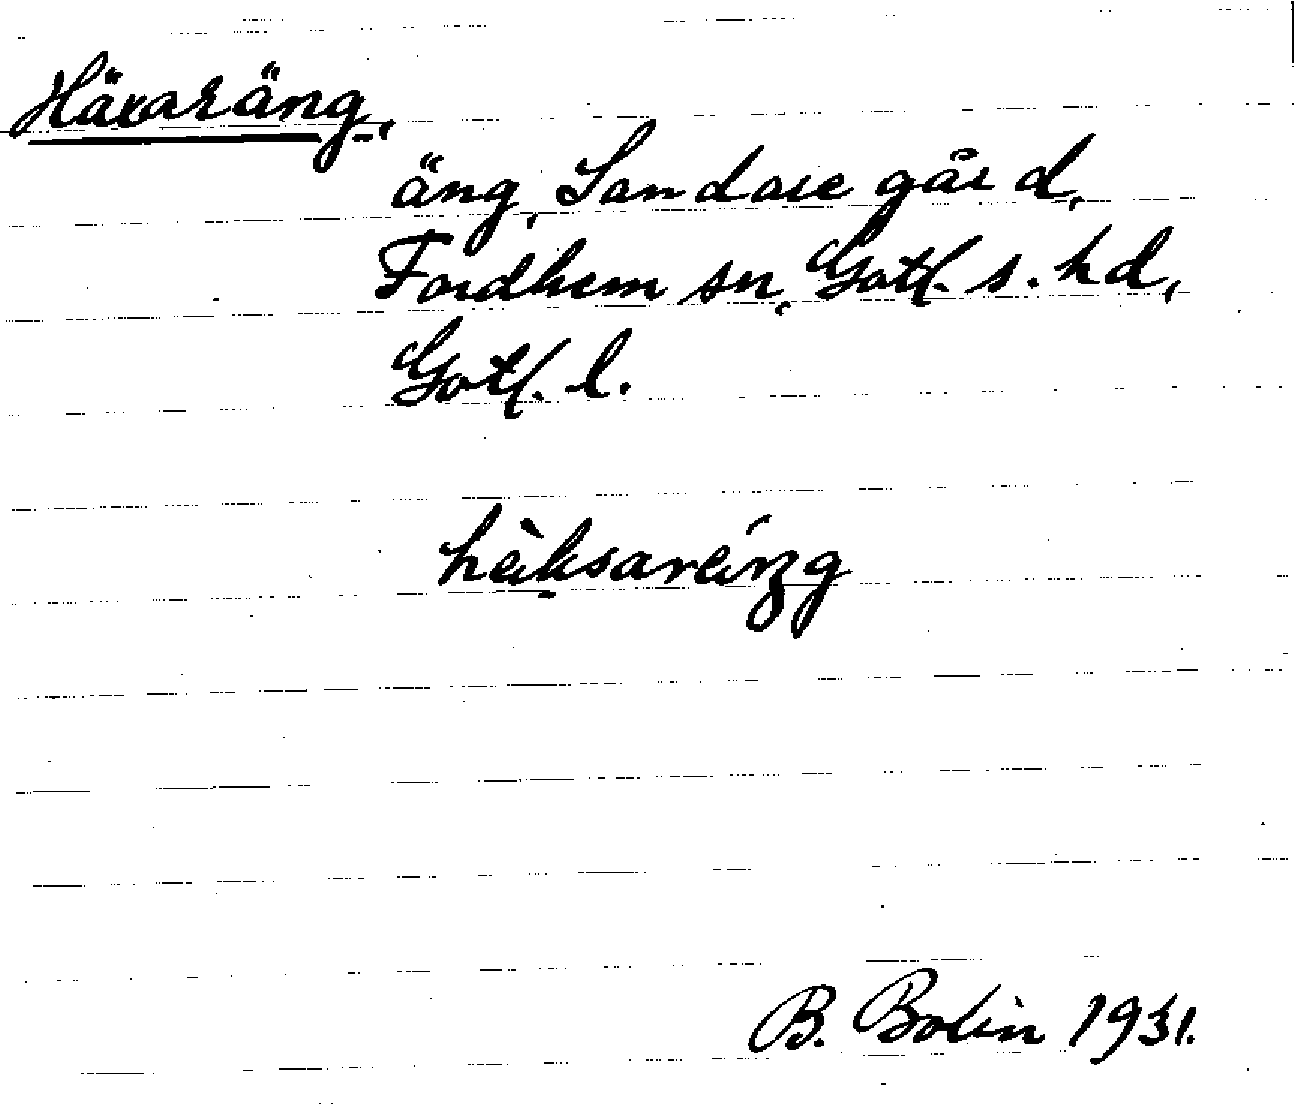 Häxaräng,
äng, Sandare gård,
Fardhem sn, Gotl. s. hd,
Gotl. l.
B. Bolin 1931.